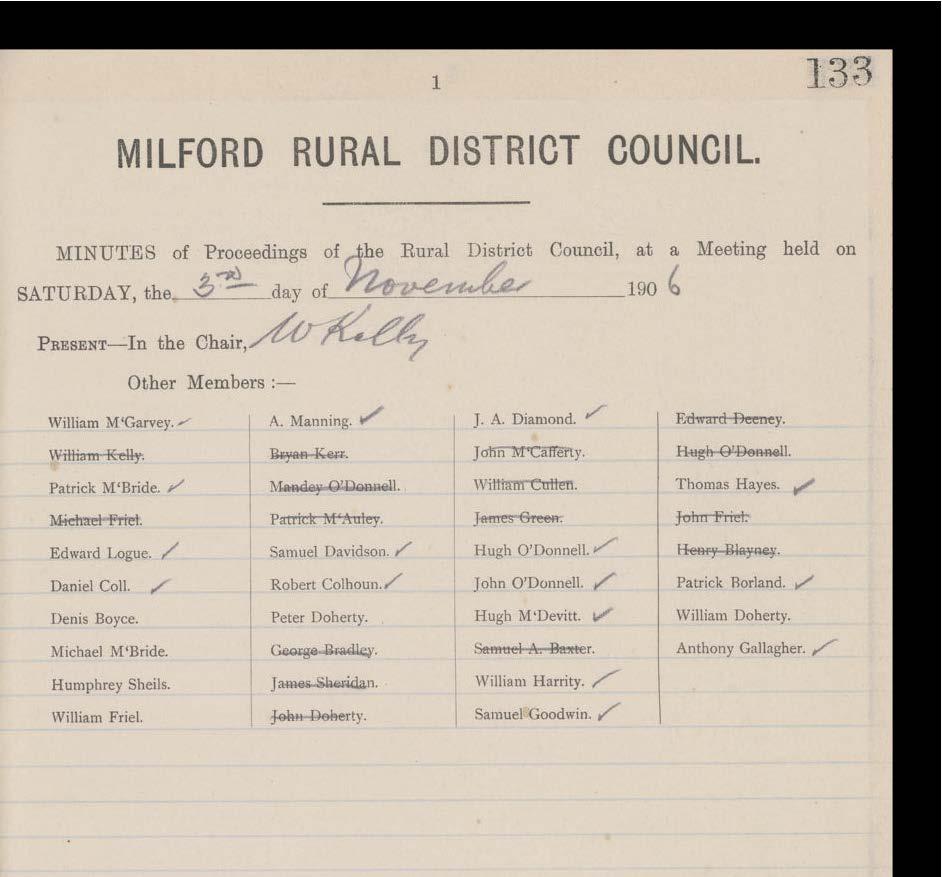 133
1
MILFORD RURAL DISTRICT COUNCIL.
MINUTES of Proceedings of the Rural District Council, at a Meeting held on
SATURDAY, the 3rd day of November 1906
PRESENT—In the Chair, W Kelly
Other Members :—
William M‘Garvey.
William Kelly.
Patrick M‘Bride.
Michael Friel.
Edward Logue.
Daniel Coll.
Denis Boyce.
Michael M‘Bride.
Humphrey Sheils.
William Friel.
A. Manning.
Bryan Kerr.
Mandey O’Donnell.
Patrick M‘Auley.
Samuel Davidson.
Robert Colhoun.
Peter Doherty.
George Bradley.
James Sheridan.
John Doherty.
J. A. Diamond.
John M‘Cafferty.
William Cullen.
James Green.
Hugh O’Donnell.
John O’Donnell.
Hugh M‘Devitt.
Samuel A. Baxter.
William Harrity.
Samuel Goodwin.
Edward Deeney.
Hugh O’Donnell.
Thomas Hayes.
John Friel.
Henry Blayney.
Patrick Borland.
William Doherty.
Anthony Gallagher.